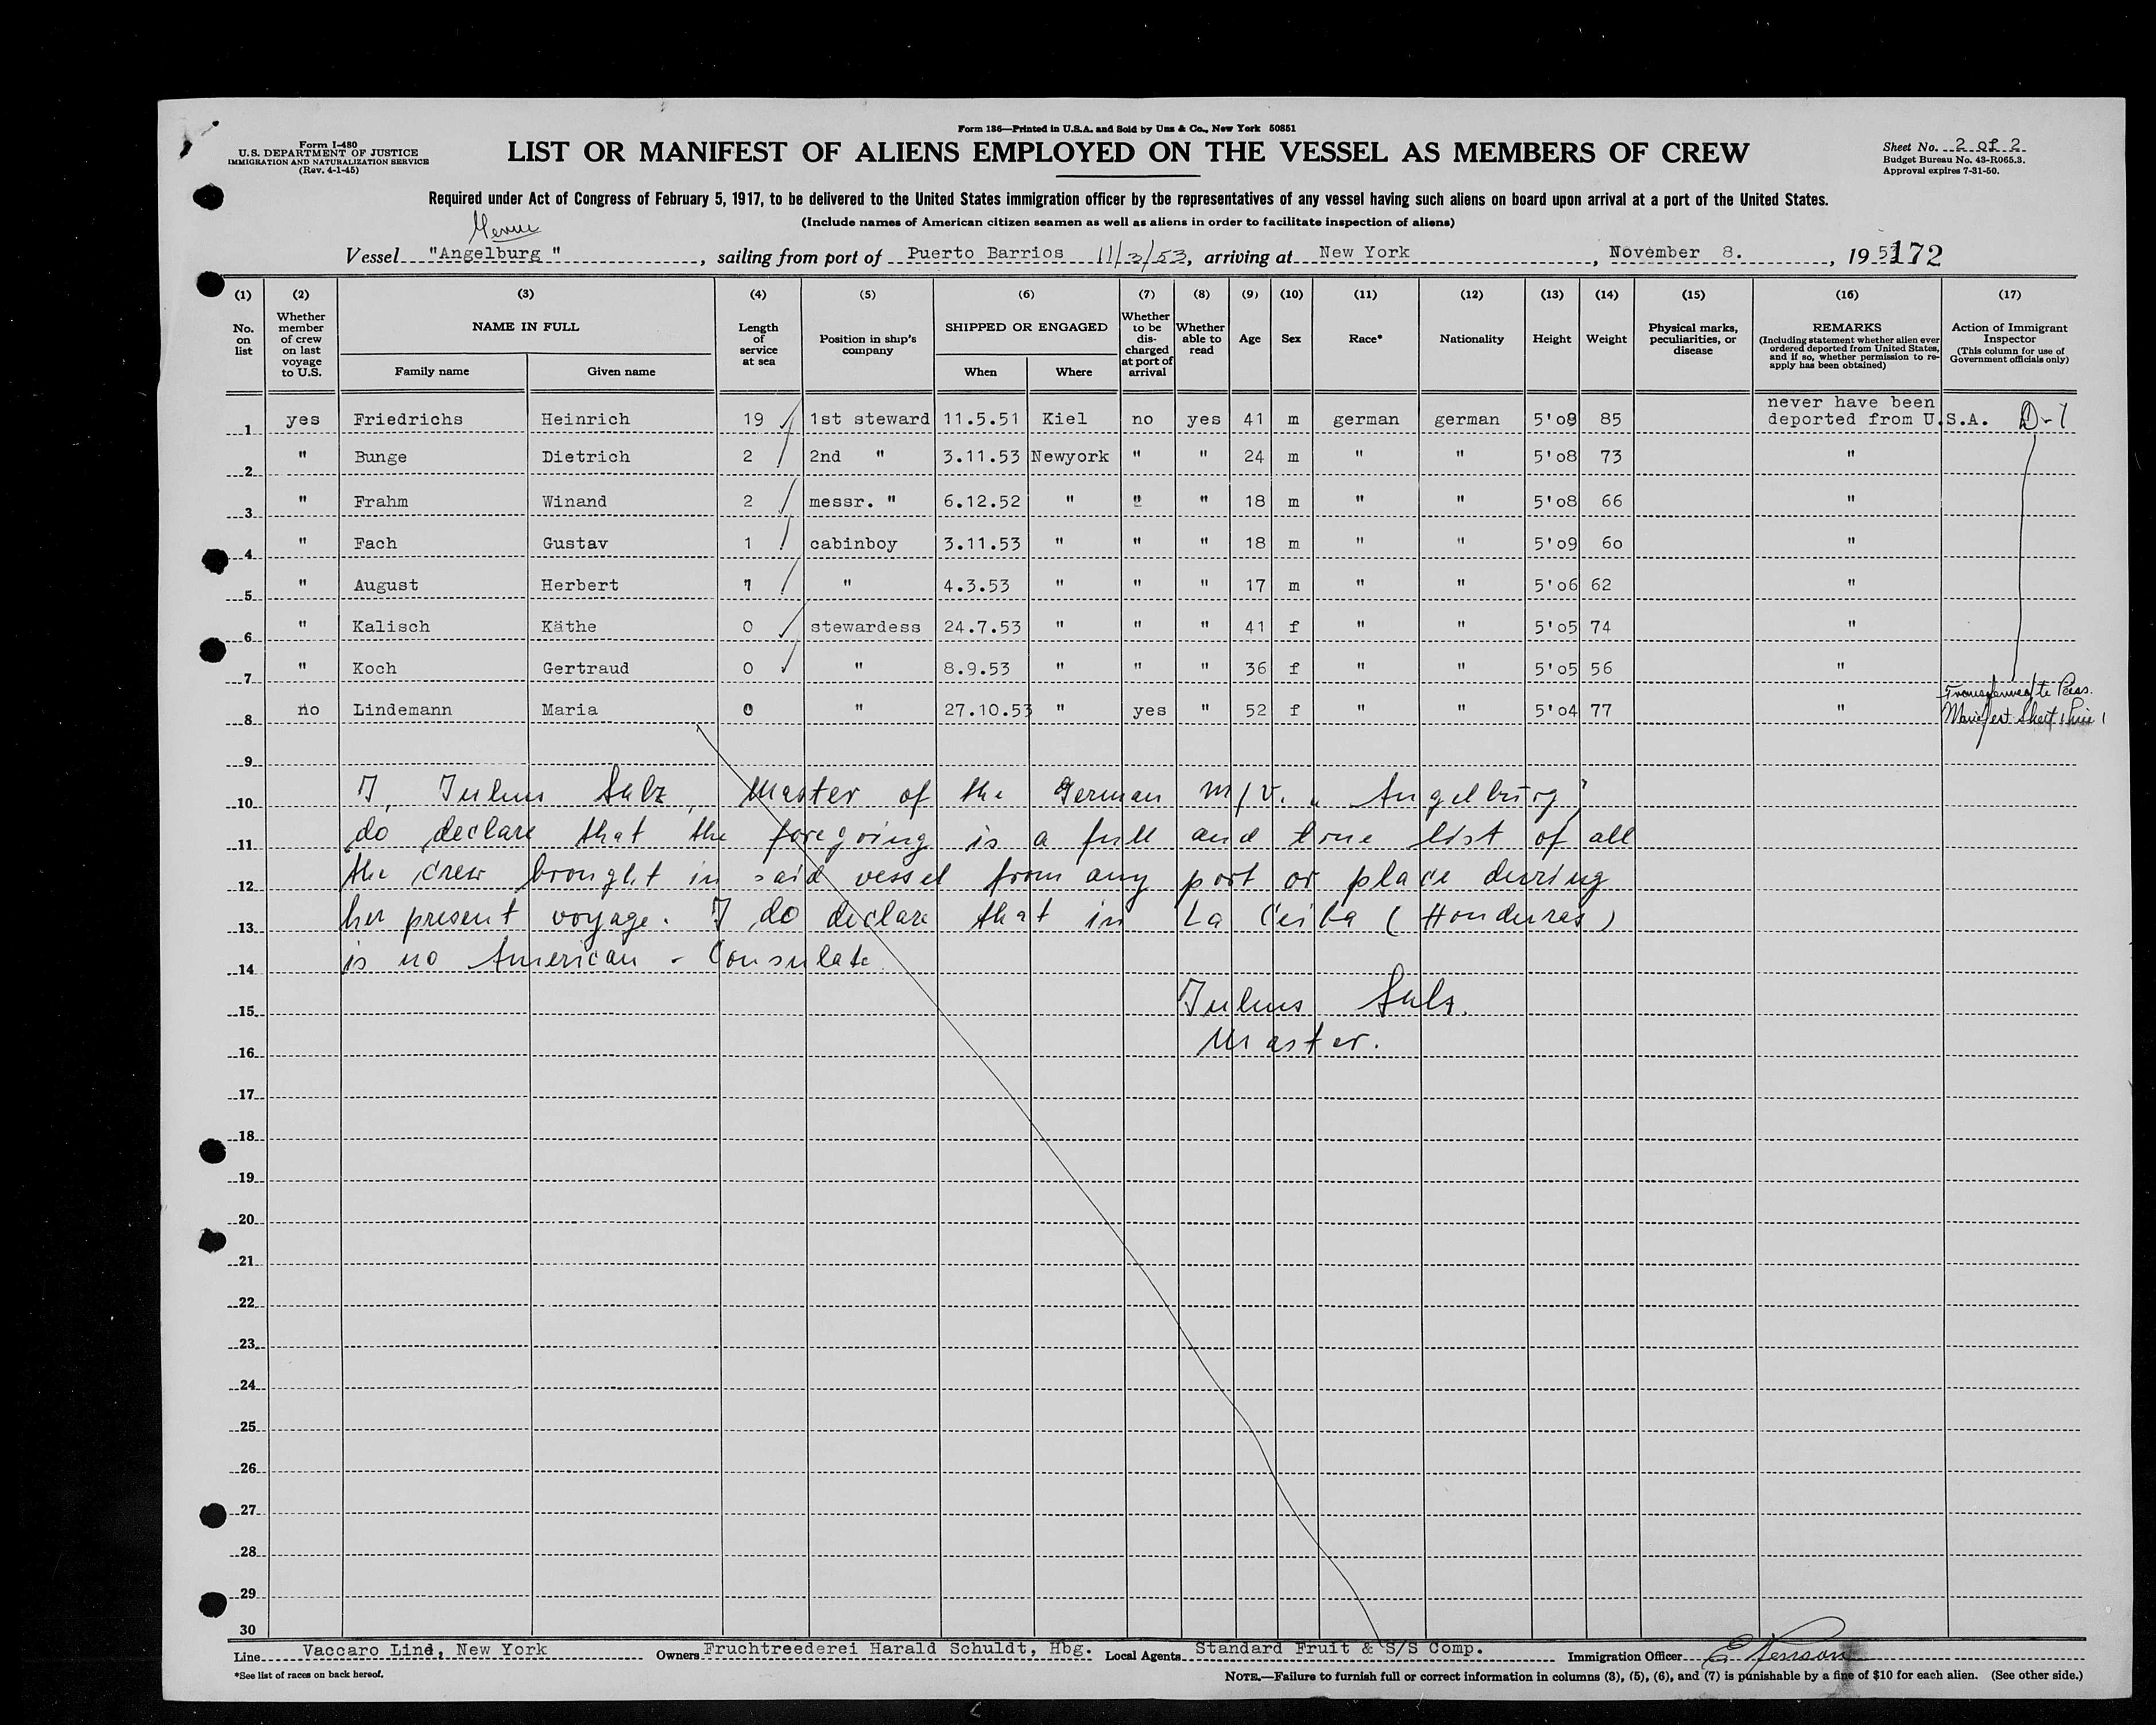 Form 136—Printed in U.S.A. and Sold by Unz & Co., New York 50851
Form I-480
U.S. DEPARTMENT OF JUSTICE
IMMIGRATION AND NATURALIZATION SERVICE
(Rev. 4-1-45)
LIST OR MANIFEST OF ALIENS EMPLOYED ON THE VESSEL AS MEMBERS OF CREW
Sheet No. 2 of 2
Budget Bureau No. 43-R065.3.
Approval expires 7-31-50.
Required under Act of Congress of February 5, 1917, to be delivered to the United States immigration officer by the representatives of any vessel having such aliens on board upon arrival at a port of the United States.
(Include names of American citizen seamen as well as aliens in order to facilitate inspection of aliens)
Vessel "Angelburg ", sailing from port of Puerto Barrios 11/3/53, arriving at New York, November 8., 1953 172
(1) (2) (3) (4) (5) (6) (7) (8) (9) (10) (11) (12) (13) (14) (15) (16) (17)
No. on list
Whether member of crew on last voyage to U.S.
NAME IN FULL
Family name
Given name
Length of service at sea
Position in ship's company
SHIPPED OR ENGAGED
When
Where
Whether to be discharged at port of arrival
Whether able to read
Age
Sex
Race*
Nationality
Height
Weight
Physical marks, peculiarities, or disease
REMARKS
(Including statement whether alien ever ordered deported from United States, and if so, whether permission to reapply has been obtained)
Action of Immigrant Inspector
(This column for use of Government officials only)
never have been
1 yes Friedrichs Heinrich 19 1st steward 11.5.51 Kiel no yes 41 m german german 5'08 85 deported from U.S.A. D-1
2 " Bunge Dietrich 2 2nd " 3.11.53 Newyork " " 24 m " " 5'08 73 "
3 " Frahm Winand 2 messr. " 6.12.52 " " " 18 m " " 5'08 66 "
4 " Fach Gustav 1 cabinboy 3.11.53 " " " 18 m " " 5'09 6o "
5 " August Herbert 1 " 4.3.53 " " " 17 m " " 5'06 62 "
6 " Kalisch Käthe 0 stewardess 24.7.53 " " " 41 f " " 5'05 74 "
7 " Koch Gertraud 0 " 8.9.53 " " " 36 f " " 5'05 56 "
8 no Lindemann Maria 0 " 27.10.53 " yes " 52 f " " 5'04 77 " Transferred to Pass. Manifest Sheet 1 Line 1
9
10 I, Julius Salz, Master of the German m/v. „Angelburg"
11 do declare that the foregoing is a full and true list of all
12 the crew brought in said vessel from any port or place during
13 her present voyage. I do declare that in La Ceiba (Honduras)
14 is no American - Consulate.
15 Julius Salz.
16 Master.
17
18
19
20
21
22
23
24
25
26
27
28
29
30
Line Vaccaro Line, New York Owners Fruchtreederei Harald Schuldt, Hbg. Local Agents Standard Fruit & S/S Comp. Immigration Officer
*See list of races on back hereof.
NOTE.—Failure to furnish full or correct information in columns (3), (5), (6), and (7) is punishable by a fine of $10 for each alien. (See other side.)